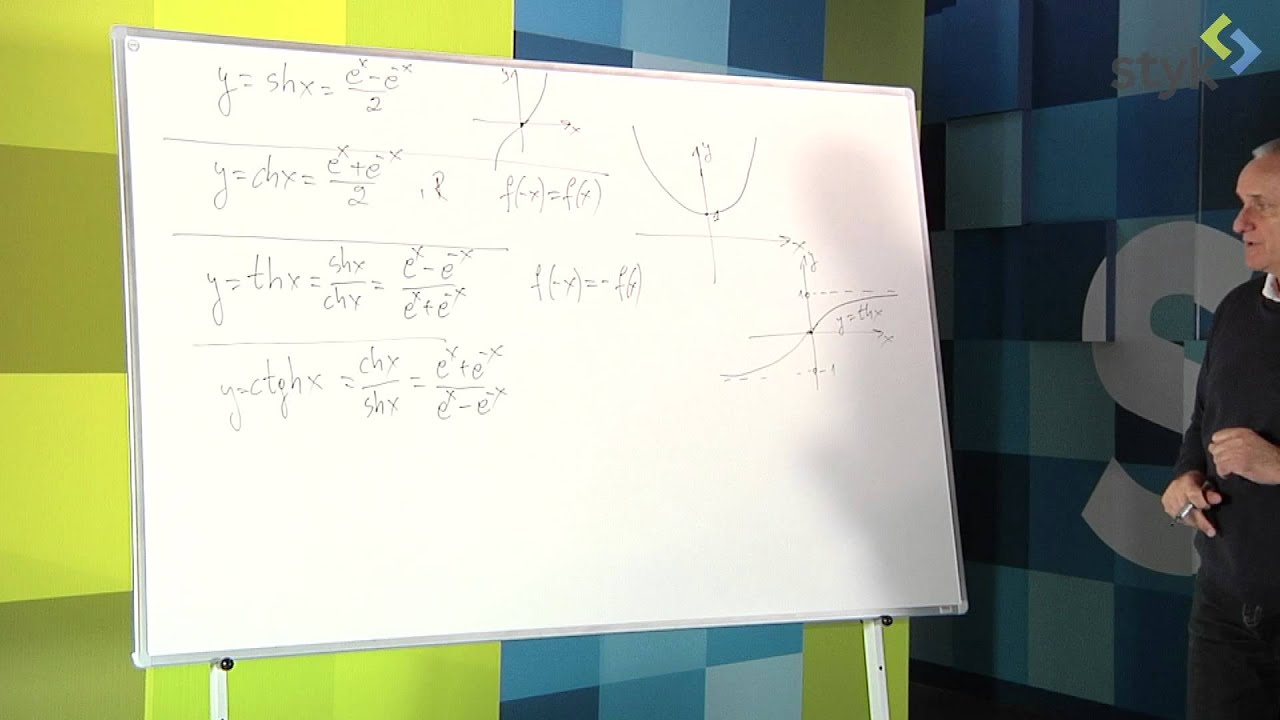 y = shx = (e^x - e^-x)/2
y x
y = chx = (e^x + e^-x)/2 , R f(-x) = f(x)
y 1 x
y = thx = shx/chx = (e^x - e^-x)/(e^x + e^-x) f(-x) = -f(x)
y 1 y = thx x -1
y = ctghx = chx/shx = (e^x + e^-x)/(e^x - e^-x)
styk
S